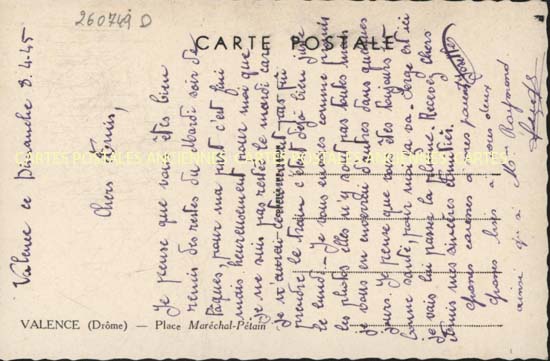 260749 D
CARTE POSTALE
Valence ce Dimanche 8.4.45
Chers amis,
Je pense que vous êtes bien
remis des restes du Mardi soir de
Pâques, pour ma part c'est fini
mais heureusement pour moi que
je ne suis pas resté le mardi car
je n'aurai certainement pas pu
prendre le train c'était déjà bien juste
le lundi. - Je vous envoies comme promis
les photos elles n'y sont pas toutes mais
je vous en enverrai d'autres dans quelques
jours. Je pense que vous êtes toujours en
bonne santé, pour moi ça va - Serge est ici
je vais lui passer la plume. Recevez chers
amis mes sincères amitiés
grosses caresses à mes petites
gros bises à vous deux
ainsi qu'à Mme Raymond
CARTES POSTALES ANCIENNES
VALENCE (Drôme) — Place Maréchal-Pétain